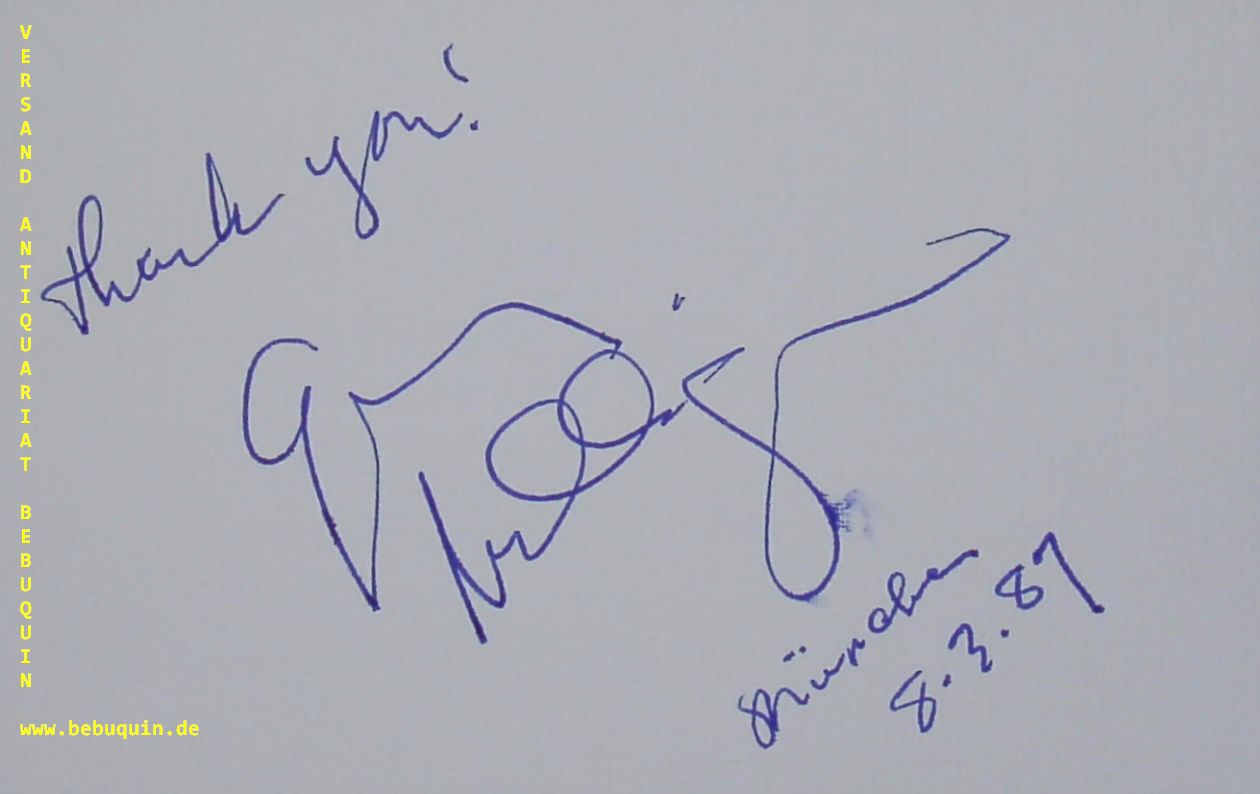 VERSAND ANTIQUARIAT BEBUQUIN
thank you!
München
8.3.87
www.bebuquin.de